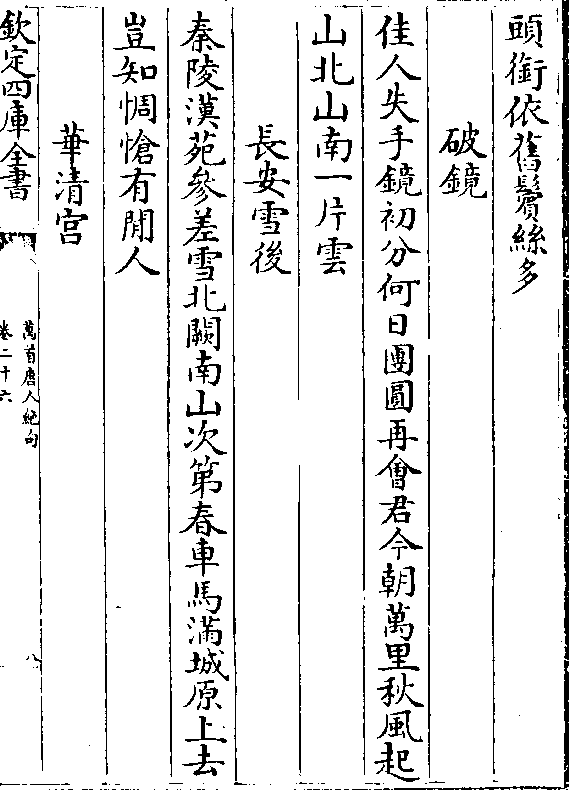 頭銜依舊鬢絲多
破鏡
佳人失手鏡初分何日團圓再會君今朝萬里秋風起
山北山南一片雲
長安雪後
秦陵漢苑參差雪北闕南山次第春車馬滿城原上去
豈知惆愴有閒人
華清宮
欽定四庫全書
萬首唐人絶句
卷二十六
八